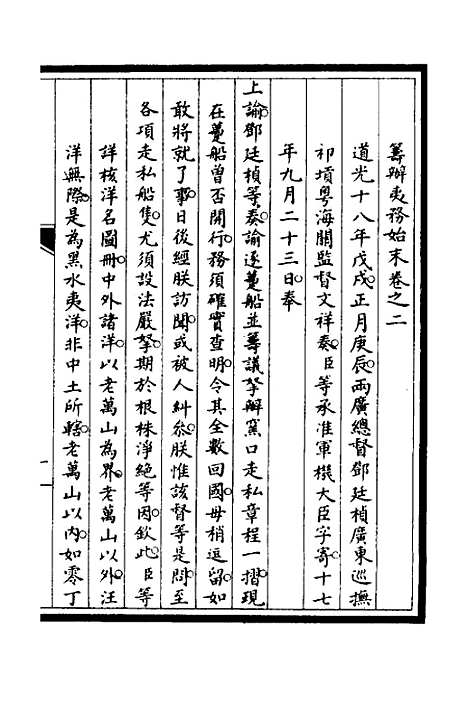 籌辦夷務始末卷之二
道光十八年戊戌正月庚辰兩廣總督鄧廷楨廣東巡撫
祁墳粵海關監督文祥奏。臣等承准軍機大臣字寄。十七
年九月二十三日奉
上諭。鄧廷楨等奏。諭逐躉船並籌議拏辦窯口走私章程一摺。現
在躉船曾否開行。務須確實查明。令其全數回國。毋稍逗留。如
敢將就了事。日後經朕訪聞。或被人糾參。朕惟該督等是問。至
各項走私船隻。尤須設法嚴拏。期於根株淨絕等因。欽此。臣等
詳核洋名圖冊。中外諸洋。以老萬山為界。老萬山以外。汪
洋無際。是為黑水夷洋。非中土所轄。老萬山以內。如零丁